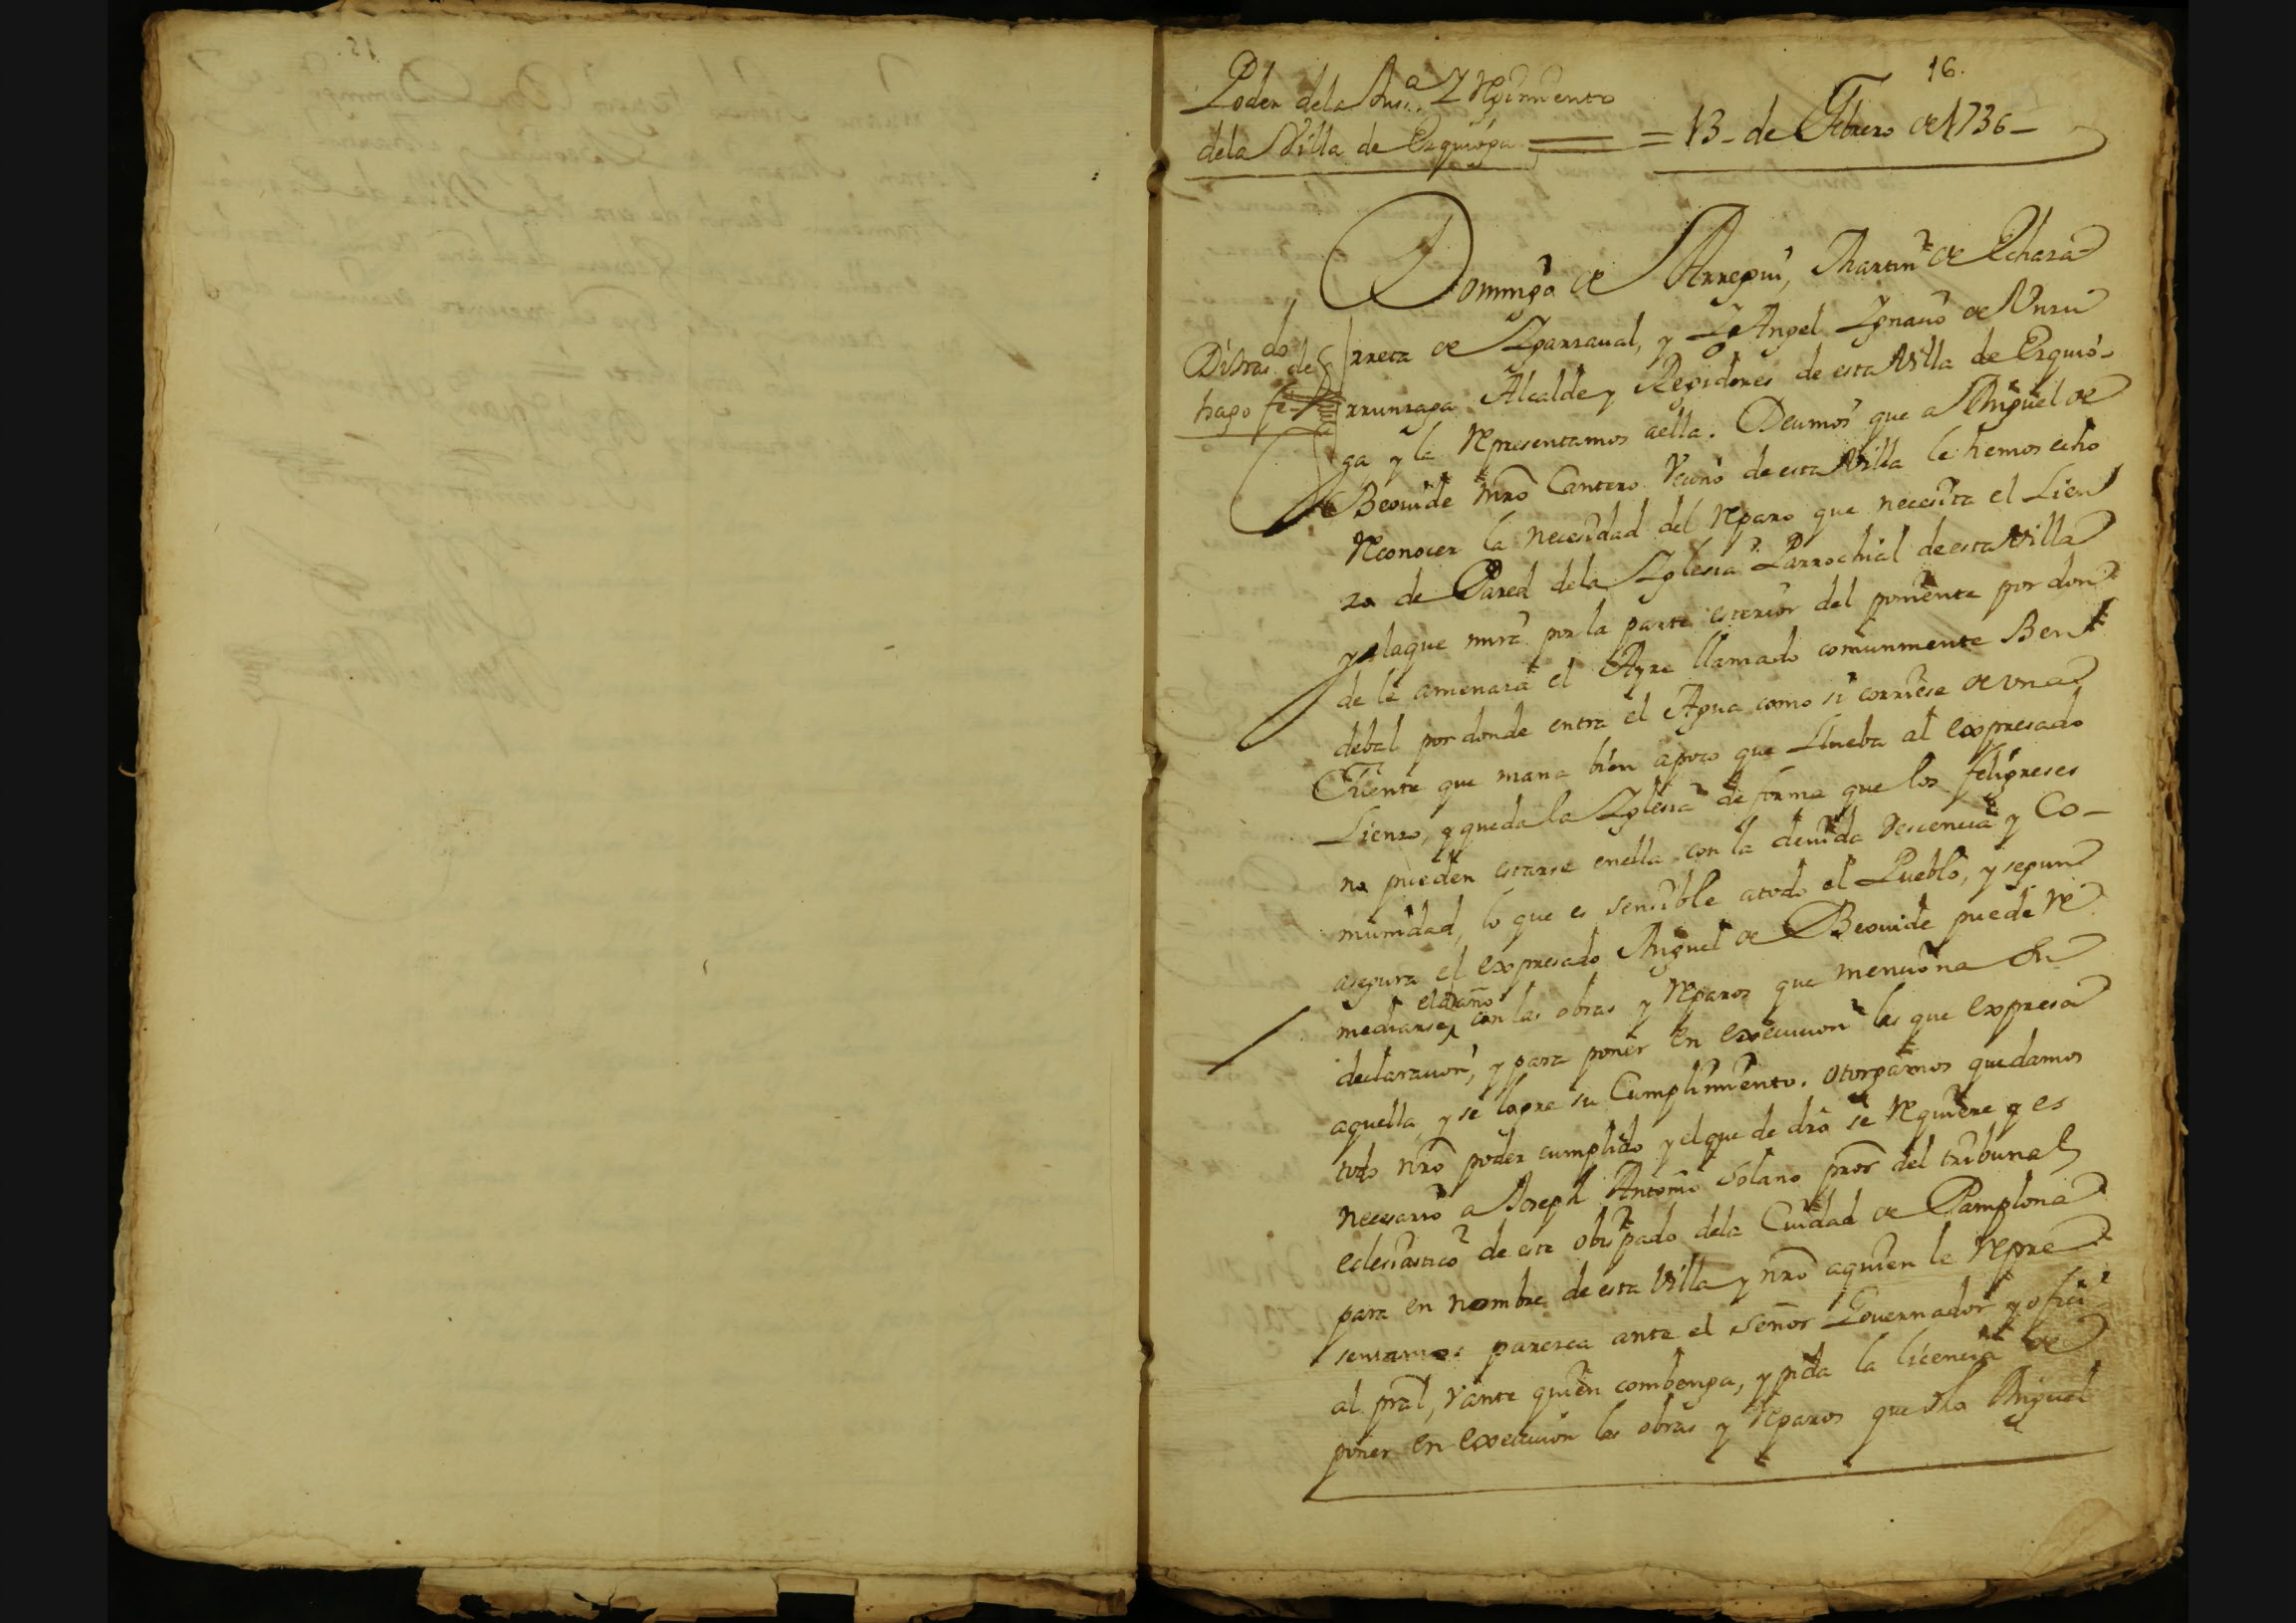 16.
Poder dela Jusª. Y Regimiento
dela Villa de Ezquioga == = 13 - de Febrero de 1736 -
Domingo de Arregui, Martin de Echaza
rreta de Yparraval, y Angel Ygnacio de Urru
rrunzaga Alcalde y Regidores de esta Villa de Ezquio-
do
hago fe
ga y la Representamos aella. Decimos que a Miguel de
Beovide Mro Cantero Vecino de esta Villa le hemos echo
Reconocer la necesidad del Reparo que necesita el Lien
zo de Pared dela Yglesia Parrochial de esta Villa
y laque mira por la parte esterior del poniente por don
de le amenaza el Ayre llamado comunmente Ben
debal por donde entra el Agua como si corriese de una
Fuente que mana bien apoco que Llueba al expresado
Lienzo, y queda la Yglesia de forma que los feligreses
no pueden estarse enella con la devida desencia y Co-
munidad, lo que es sensible atodo el Pueblo, y segun
asegura el expresado Miguel de Beovide puede Re
mediarse el daño con las obras y Reparos que menciona su
declaracion, y para poner en execucion las que expresa
aquella, y se logre su Cumplimiento. otorgamos quedamos
todo nro poder cumplido y elque de dro se Requiere y es
necesario a Joseph Antonio Solano pror del tribunal
eclesiastico de este obispado dela Ciudad de Pamplona
para en nombre de esta Villa y nro aquien le Repre
sentamos paresca ante el Señor Governador y ofici
al pral, Y ante quien combenga, y pida la licencia de
poner en execucion las obras y Reparos que dho Miguel